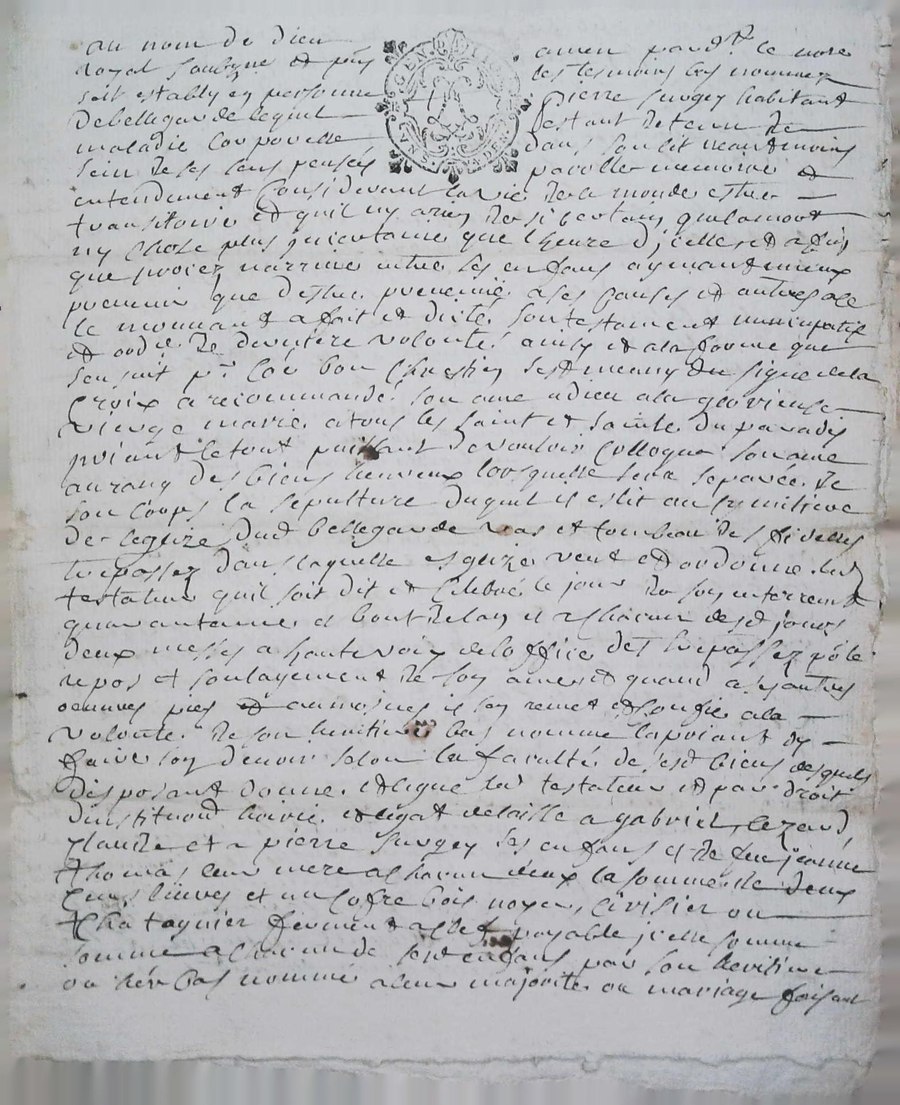 au nom de dieu amen pard^t le no^re
Royal soubzne et pñs des tesmoins bas nommez
GEN. D'AU
VN S. QVA. DEN.
soit estably en personne Pierre Surgey habitant
de bellegarde lequel estant detenu de
maladie corporelle dans son lit neantmoins
sein de ses sens pensés parolle memoire et
entendement Considerant la vie de ce monde estre
transitoire et quil ny a rien de si certain que la mort
ny chose plus incertaine que l'heure dicelle et affin
que procez narrive entre ses enfans aymant mieux
prevenir que destre prevenu a ses causes et autres a le
le mouvant a fait et dicte son testament nuncupatif
et ordce de derniere volonte ainsy et a la forme que
sensuit p^r Coe bon Chrestien sest muny du signe de la
Croix a recommandé son ame a dieu a la glorieuse
vierge marie a tous les saint et sainte du paradis
priant le tout puissant de vouloir colloquer son ame
au rang des biens heureux lorsquelle sera separée de
son corps la sepulture duquel il eslit au cymitiere
de leglize dud bellegarde vas et tombeau des fidelles
trepassez dans laquelle esglize veut et ordonne led
testateur quil soit dit et celebré le jour de son enterremt
quarantenne et bout de lan et a chacun desd jours
deux messes a haute voix de loffice des trepassez po^r le
repos et soulagement de son ame et quand a ses autres
oeuvres pies et aumosnes il sen remet et confie a la
volonte de son heritier bas nomme lapriant dy
faire son devoir selon la faculté de sesd biens desquels
disposant donne et legue led testateur et par droit
dinstitu^on hairie et legat delaisse a gabriel,
Claude et a pierre Surgey ses enfans et de feue jeanne
thomas leur mere a chacun deux la somme de deux
Cens livres et un Coffre bois noyer, Cerisier ou
Chataignier fermant a clef payable icelle somme
somme a chacun de sesd enfans par son heritiere
ou hér bas nommé a leur majorité ou mariage faisant